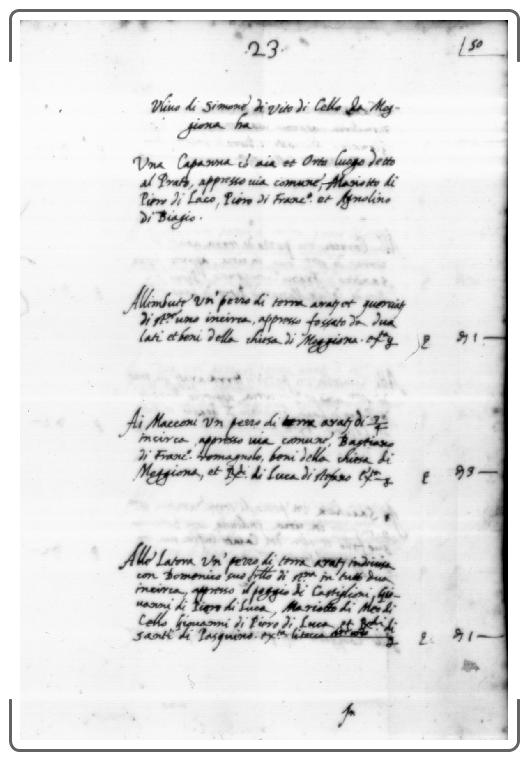 .23.
50
Ulivo di Simone di Vito di Cello da Meg-
giona ha
Una Capanna cō aia et Orto luogo detto
al Prato, appresso via comune, Mariotto di
Piero di Laco, Piero di Franc.º et Agnolino
di Biagio.
Allimbuto Un' pezzo di terra arat et querciat
di uno incirca, appresso fossato da dua
lati et beni della chiesa di Meggiona.
1 —
Ai Macconi Un pezzo di terra arat di
incirca, appresso via comune, Bastiano
di Franc.º Romagnolo, beni della chiesa di
Meggiona, et di Luca di Stefano
3 —
Allo Latora Un' pezzo di terra arat indivisa
con Domenico suo frllo di in tutto dua
incirca, appresso il poggio di Castiglioni, Gio-
vanni di Piero di Luca, Mariotto di Meo di
Cello Giovanni di Piero di Luca et Redi di
Santi di Pasquino.
1 —